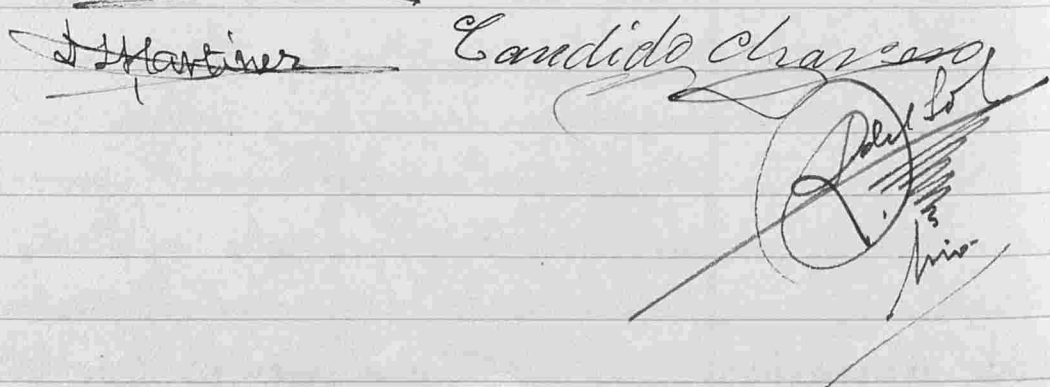 Martinez Candido Chavero
R del Sol
Srio-